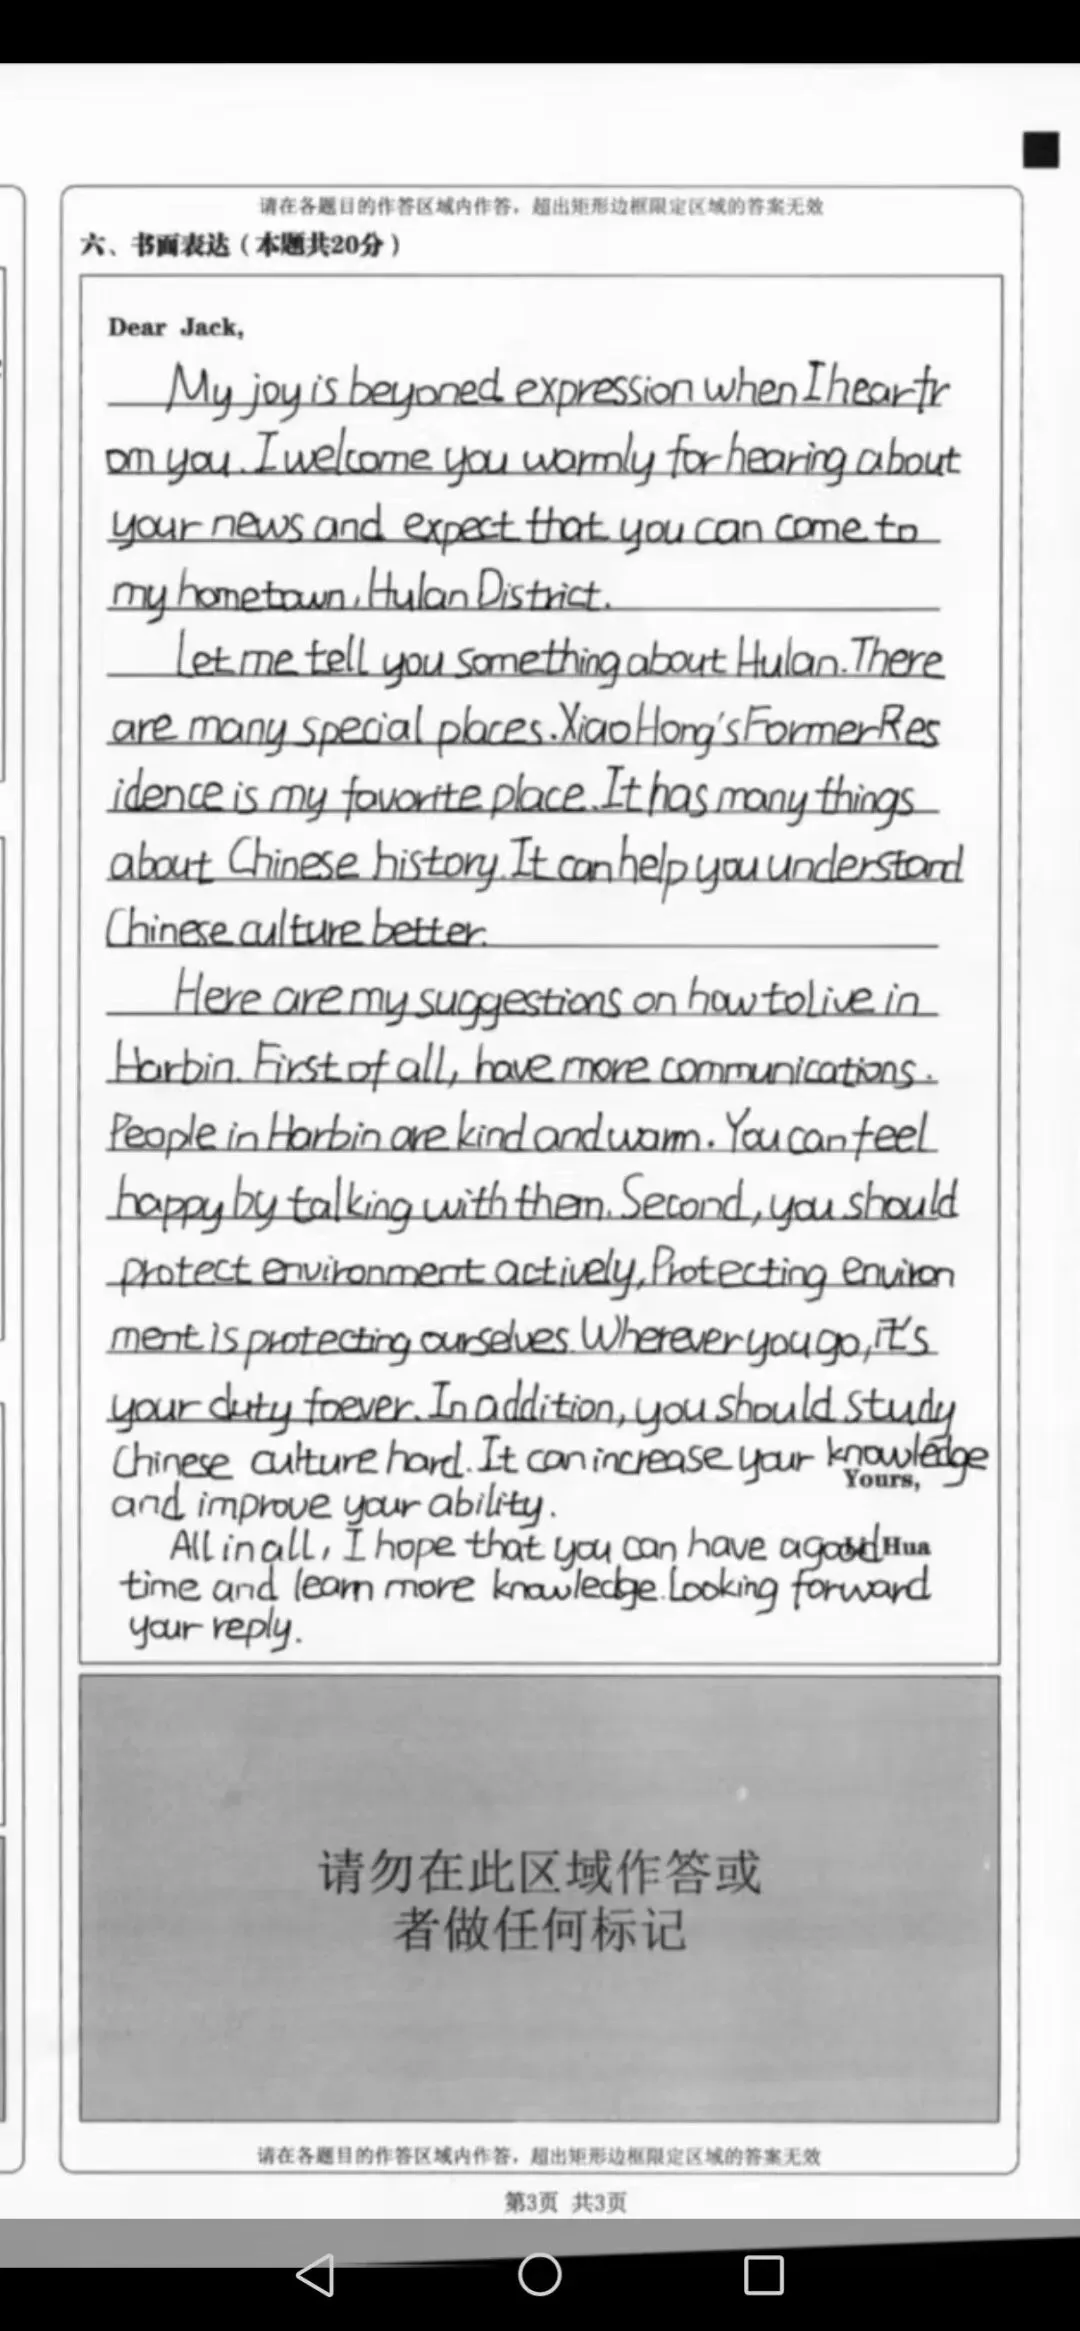 请在各题目的作答区域内作答，超出矩形边框限定区域的答案无效
六、书面表达（本题共20分）
Dear Jack,
My joy is beyoned expression when I hear fr
om you. I welcome you warmly for hearing about
your news and expect that you can come to
my hometown, Hulan District.
Let me tell you something about Hulan. There
are many special places. Xiao Hong's Former Res
idence is my favorite place. It has many things
about Chinese history. It can help you understand
Chinese culture better.
Here are my suggestions on how to live in
Harbin. First of all, have more communications.
People in Harbin are kind and warm. You can feel
happy by talking with them. Second, you should
protect environment actively, Protecting environ
ment is protecting ourselves. Wherever you go, it's
your duty foever. In addition, you should study
Chinese culture hard. It can increase your knowledge
Yours,
and improve your ability.
All in all, I hope that you can have a good
Li Hua
time and learn more knowledge. Looking forward
your reply.
请勿在此区域作答或
者做任何标记
请在各题目的作答区域内作答，超出矩形边框限定区域的答案无效
第3页 共3页